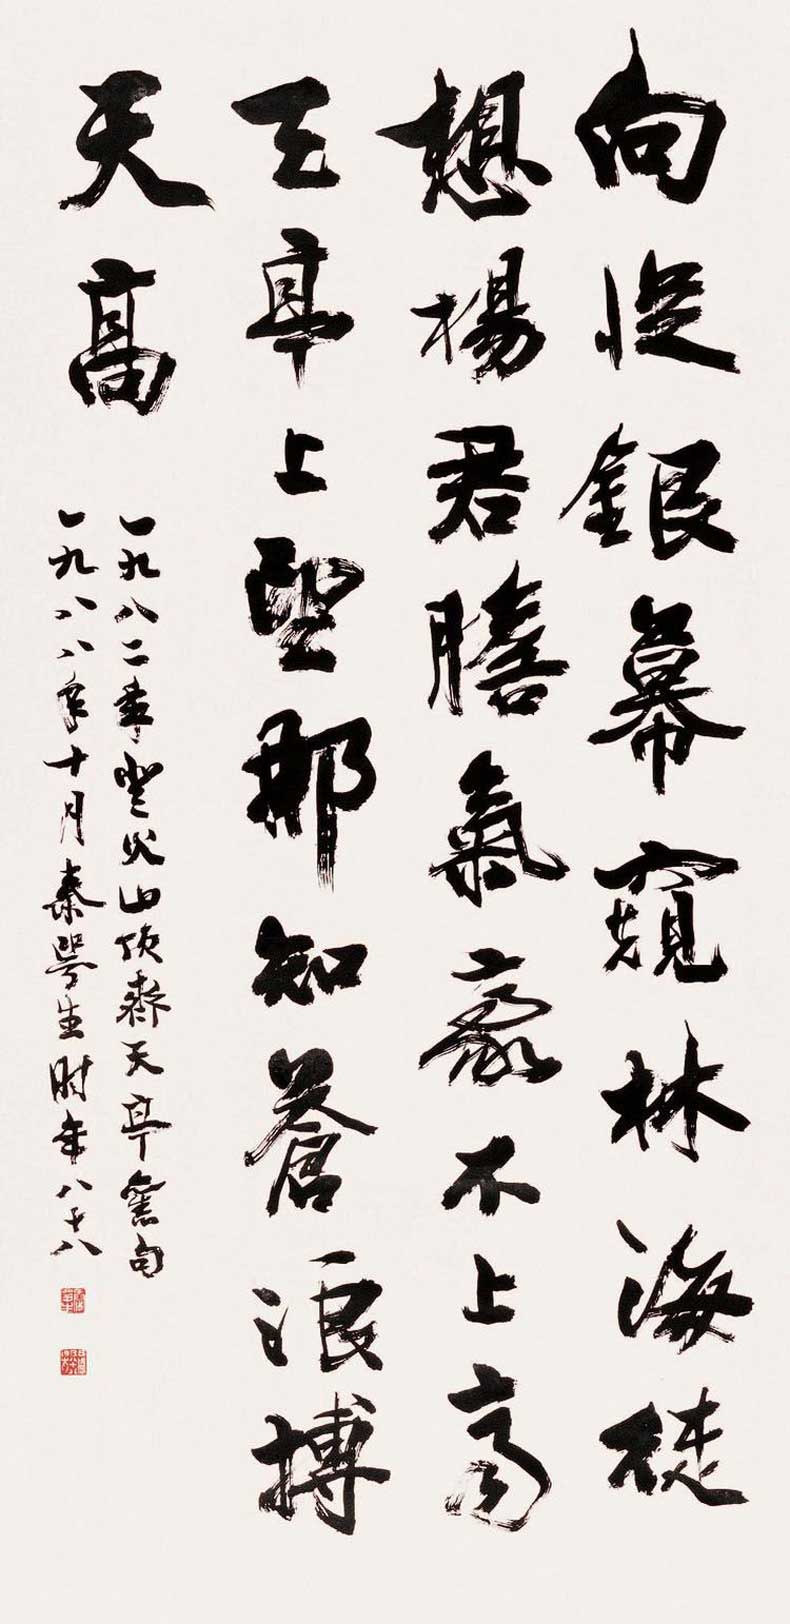 向從銀幕窺林海徒
想楊君膽氣豪不上齊
天亭上望那知蒼浪搏
天高
一九八二年登火山頂齊天亭舊句
一九八八年十月秦咢生時年八十八